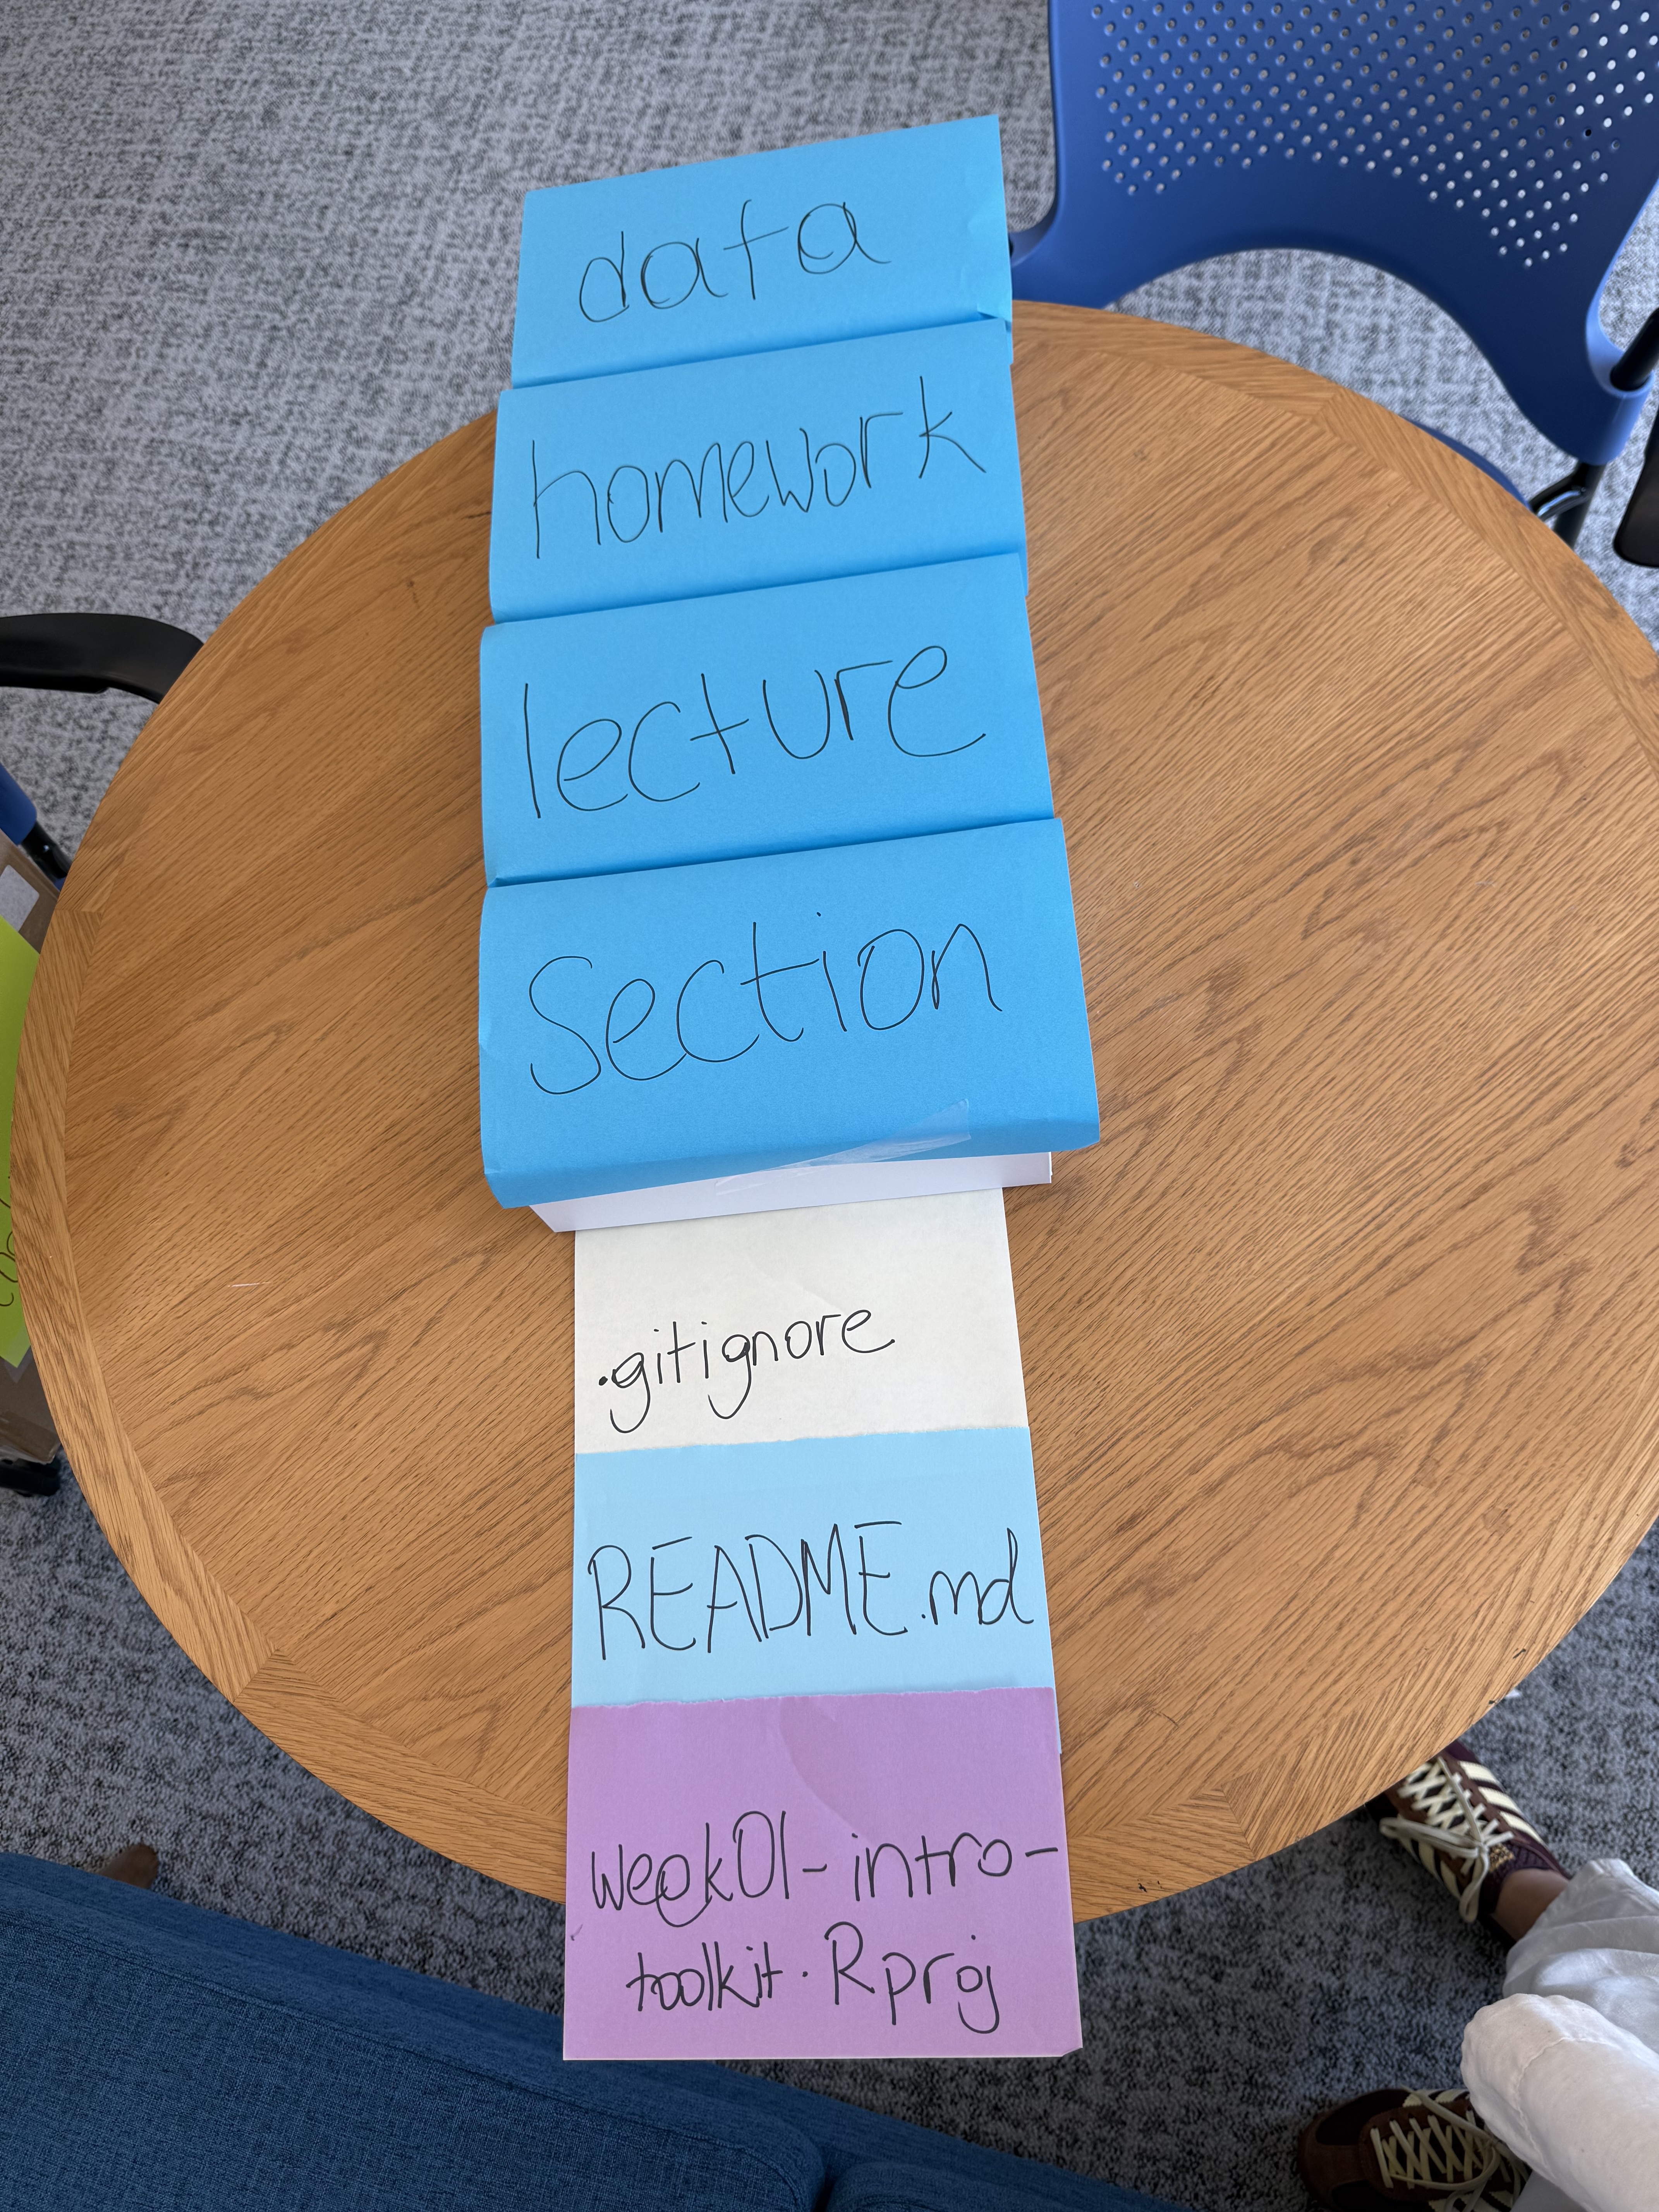 data
homework
lecture
section
.gitignore
README.md
week01-intro-
toolkit.Rproj